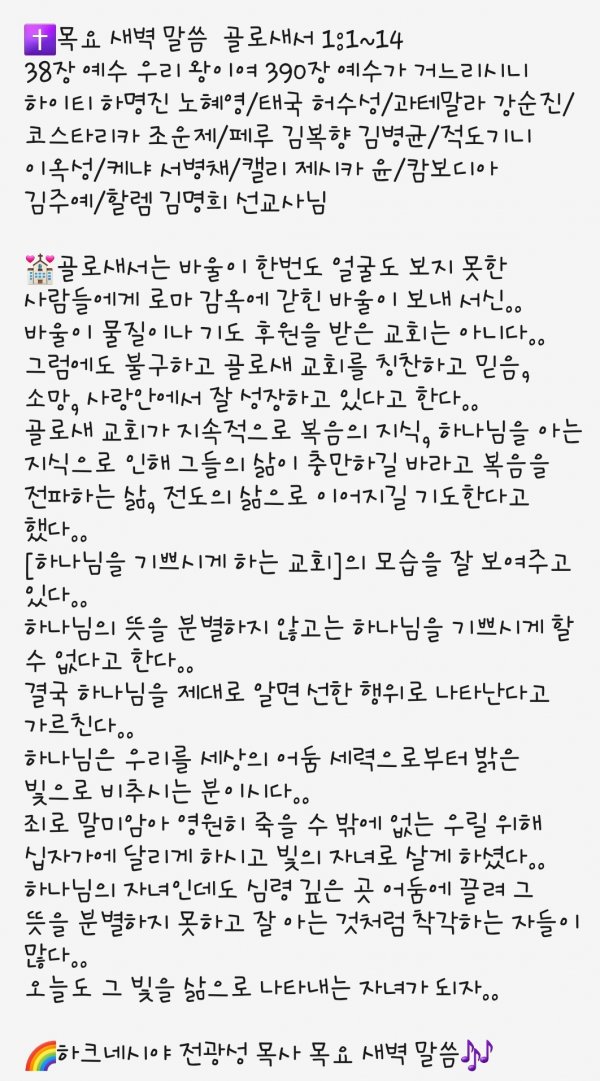 ✝️목요 새벽 말씀  골로새서 1:1~14
38장 예수 우리 왕이여 390장 예수가 거느리시니
하이티 하명진 노혜영/태국 허수성/과테말라 강순진/
코스타리카 조운제/페루 김복향 김병균/적도기니
이옥성/케냐 서병채/캘리 제시카 윤/캄보디아
김주예/할렘 김명희 선교사님

💒골로새서는 바울이 한번도 얼굴도 보지 못한
사람들에게 로마 감옥에 갇힌 바울이 보내 서신..
바울이 물질이나 기도 후원을 받은 교회는 아니다..
그럼에도 불구하고 골로새 교회를 칭찬하고 믿음,
소망, 사랑안에서 잘 성장하고 있다고 한다..
골로새 교회가 지속적으로 복음의 지식, 하나님을 아는
지식으로 인해 그들의 삶이 충만하길 바라고 복음을
전파하는 삶, 전도의 삶으로 이어지길 기도한다고
했다..
[하나님을 기쁘시게 하는 교회]의 모습을 잘 보여주고
있다..
하나님의 뜻을 분별하지 않고는 하나님을 기쁘시게 할
수 없다고 한다..
결국 하나님을 제대로 알면 선한 행위로 나타난다고
가르친다..
하나님은 우리를 세상의 어둠 세력으로부터 밝은
빛으로 비추시는 분이시다..
죄로 말미암아 영원히 죽을 수 밖에 없는 우릴 위해
십자가에 달리게 하시고 빛의 자녀로 살게 하셨다..
하나님의 자녀인데도 심령 깊은 곳 어둠에 끌려 그
뜻을 분별하지 못하고 잘 아는 것처럼 착각하는 자들이
많다..
오늘도 그 빛을 삶으로 나타내는 자녀가 되자..

🌈하크네시야 전광성 목사 목요 새벽 말씀🎶